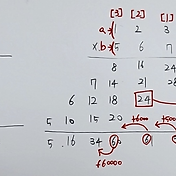 [3] [2] [1]
a→ 1 2 3
x b→ 5 6 7
8 16 24
7 14 21 28
6 12 18 24
5 10 15 20 +6000 +500
5 16 34 60
+60000